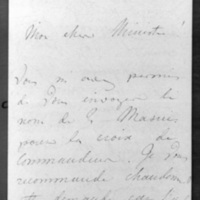 Mon cher Ministre!
Vous m'avez permis
à Vous envoyer le
nom de Mr Masure
pour la croix de
Commandeur. Je Vous
recommande chaudem